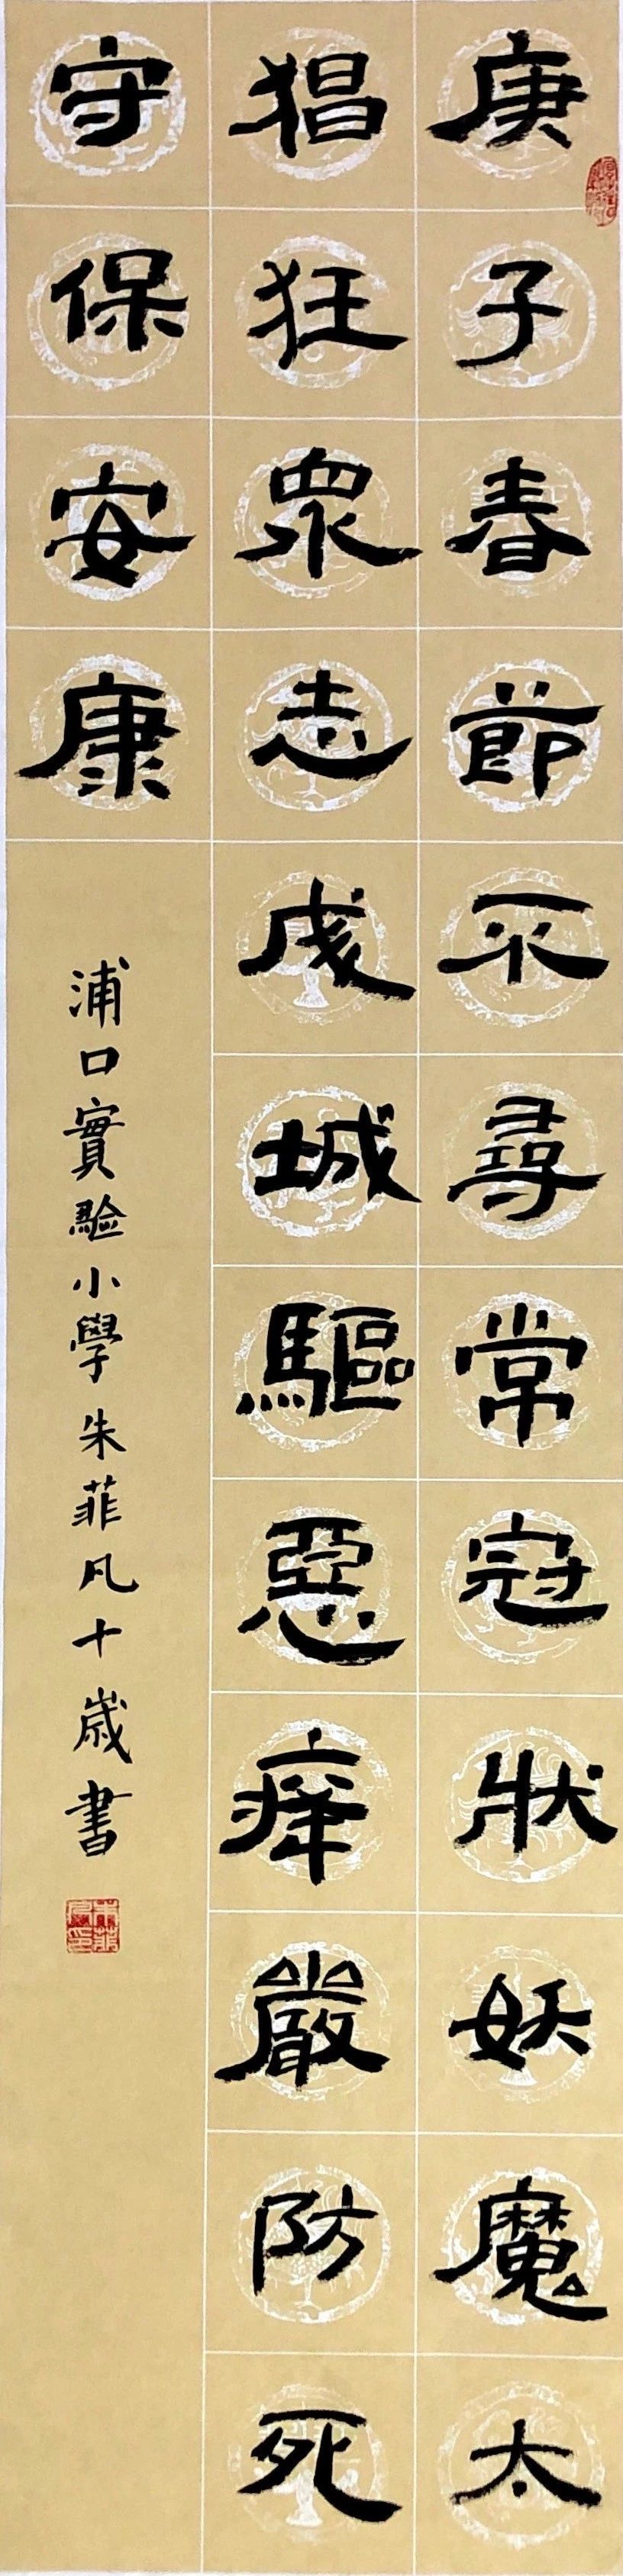 庚子春節不尋常冠狀妖魔太
猖狂眾志成城驅惡瘴嚴防死
守保安康
浦口實驗小學朱菲凡十歲書